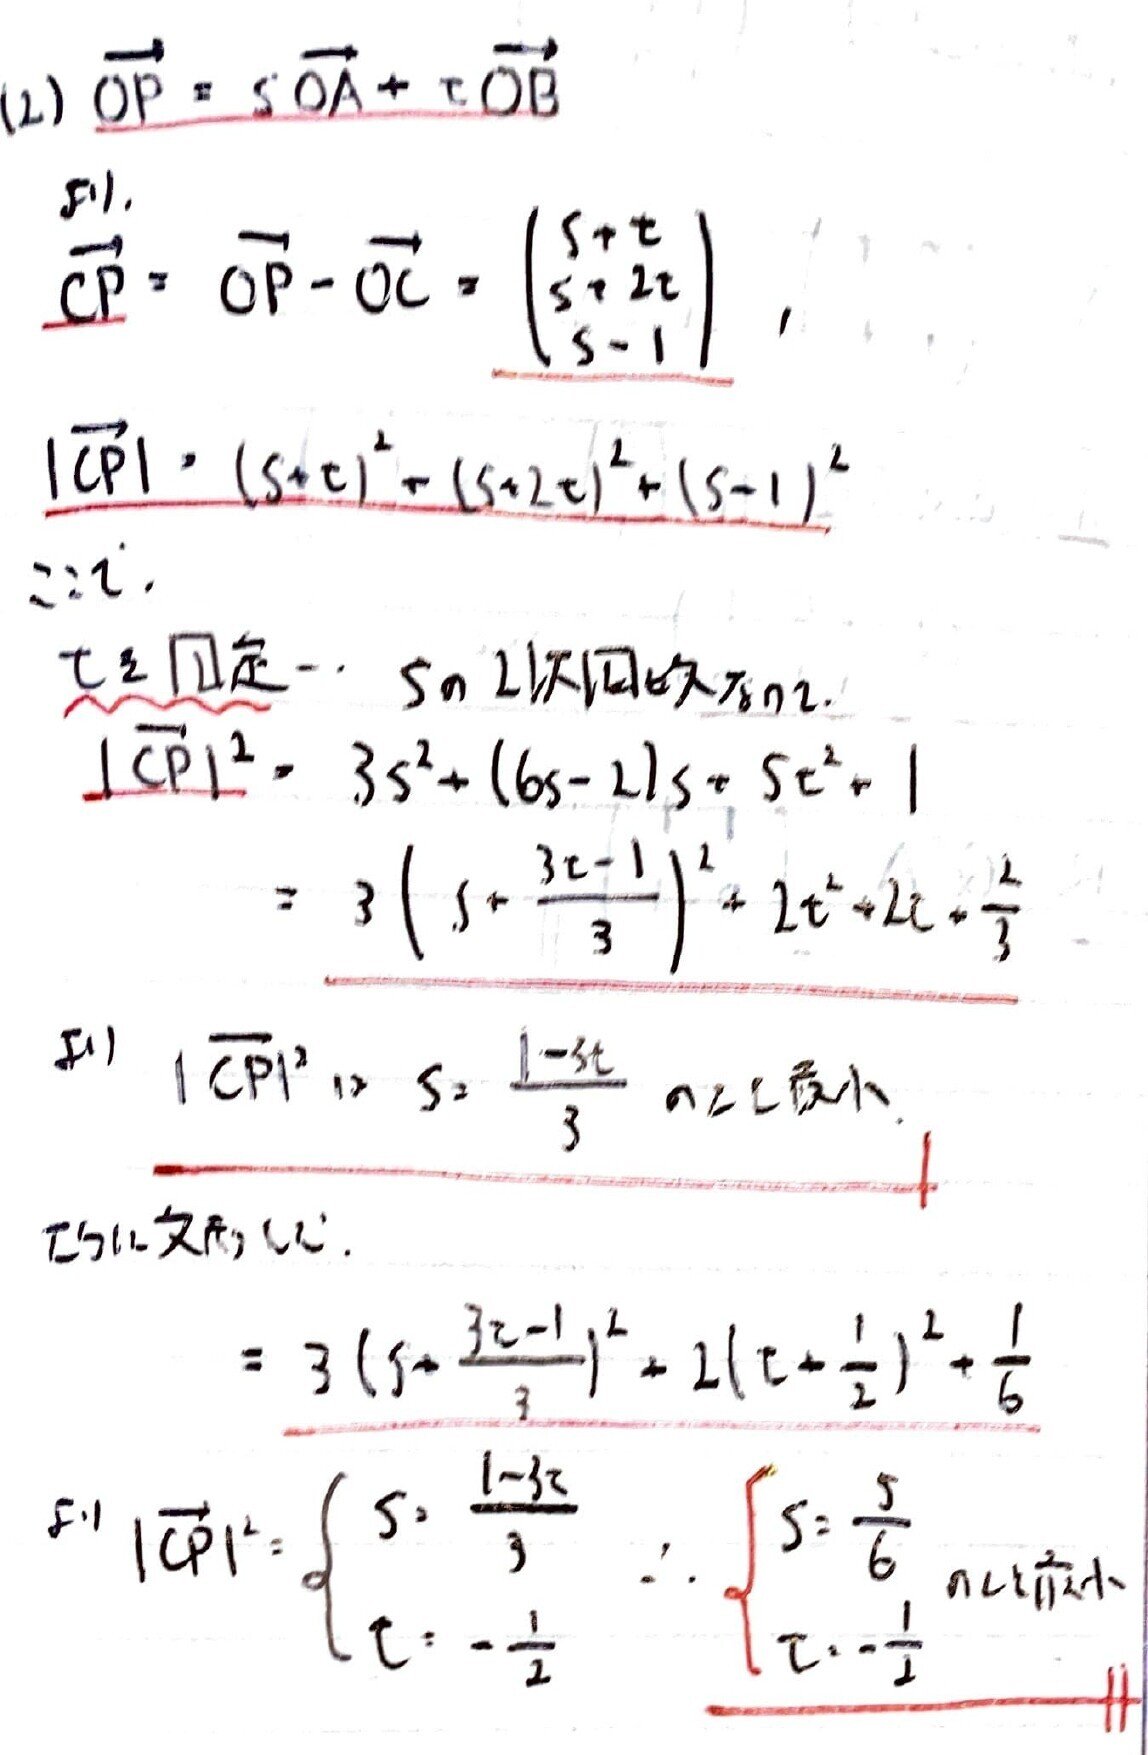 (2) OP = sOA + tOB
より.
CP = OP - OC = (s+t s+2t s-1) ,
|CP| = (s+t)² + (s+2t)² + (s-1)²
ここで.
tを固定… sの2次関数なので.
|CP|² = 3s² + (6s-2)s + 5t² + 1
= 3(s + (3t-1)/3)² + 2t² + 2t + 2/3
より |CP|² は s = (1-3t)/3 のとき最小.
さらに変形して.
= 3(s + (3t-1)/3)² + 2(t + 1/2)² + 1/6
より |CP|² = { s = (1-3t)/3 t = -1/2 ∴ { s = 5/6 t = -1/2 のとき最小